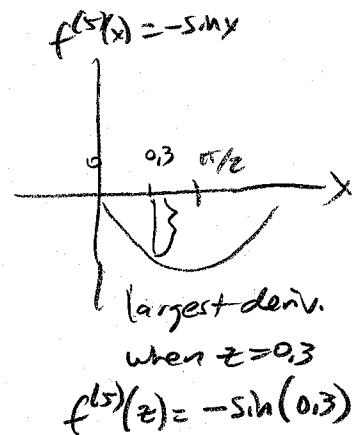 f⁽⁵⁾(x) = -sin x
0
0,3 π/2
x
largest deriv.
when z = 0,3
f⁽⁵⁾(z) = -sin(0,3)